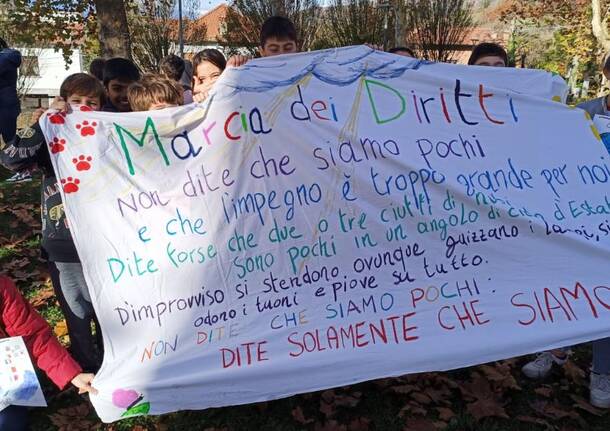 Marcia dei Diritti
Non dite che siamo pochi
e che l'impegno è troppo grande per noi
Dite forse che due o tre ciuffi di nubi
sono pochi in un angolo di cielo d'Estate
D'improvviso si stendono ovunque guizzano i lampi, si
odono i tuoni e piove su tutto.
NON DITE CHE SIAMO POCHI:
DITE SOLAMENTE CHE SIAMO